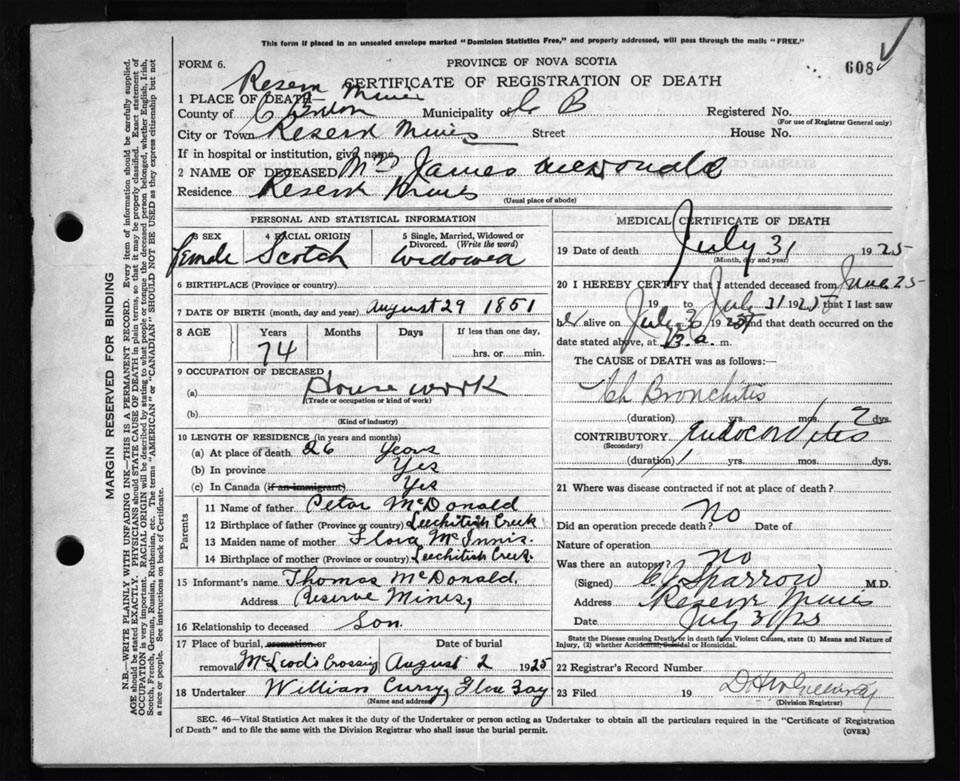 This form if placed in an unsealed envelope marked "Dominion Statistics Free," and properly addressed, will pass through the mails "FREE."
608
FORM 6.
PROVINCE OF NOVA SCOTIA
CERTIFICATE OF REGISTRATION OF DEATH
1 PLACE OF DEATH— Reserv Mines
County of C Breton Municipality of C B Registered No.
(For use of Registrar General only)
City or Town Reserv Mines Street House No.
If in hospital or institution, give name
2 NAME OF DECEASED Mrs James McDonald
Residence Reserv Mines
(Usual place of abode)
PERSONAL AND STATISTICAL INFORMATION
3 SEX 4 RACIAL ORIGIN 5 Single, Married, Widowed or Divorced. (Write the word)
female Scotch widowed
6 BIRTHPLACE (Province or country)
7 DATE OF BIRTH (month, day and year) August 29 1851
8 AGE Years Months Days If less than one day,
74 hrs. or min.
9 OCCUPATION OF DECEASED
(a) House work
(Trade or occupation or kind of work)
(b)
(Kind of industry)
10 LENGTH OF RESIDENCE (in years and months)
(a) At place of death 26 years
(b) In province Yes
(c) In Canada (if an immigrant) Yes
Parents
11 Name of father Peter McDonald
12 Birthplace of father (Province or country) Leechitish Creek
13 Maiden name of mother Flora McInnis.
14 Birthplace of mother (Province or country) Leechitish Creek.
15 Informant's name Thomas McDonald.
Address Reserve Mines,
16 Relationship to deceased Son.
17 Place of burial, cremation or removal McLeod's Crossing Date of burial August 2 1925
18 Undertaker William Curry, Glace Bay
(Name and address)
MEDICAL CERTIFICATE OF DEATH
19 Date of death July 31 1925
(Month, day and year)
20 I HEREBY CERTIFY that I attended deceased from June 25
19 to July 31 1925 that I last saw
her alive on July 30 1925 and that death occurred on the
date stated above, at a. m.
The CAUSE of DEATH was as follows:
Ch Bronchitis
(duration) yrs. mos. 2 dys.
CONTRIBUTORY Endocarditis
(Secondary)
(duration) 1 yrs. mos. dys.
21 Where was disease contracted if not at place of death?
Did an operation precede death? No Date of
Nature of operation
Was there an autopsy? no
(Signed) Sparrow M.D.
Address Reserve Mines
Date July 31/25
State the Disease causing Death, or in death from Violent Causes, state (1) Means and Nature of Injury, (2) whether Accidental, Suicidal or Homicidal.
22 Registrar's Record Number
23 Filed 19
(Division Registrar)
SEC. 46—Vital Statistics Act makes it the duty of the Undertaker or person acting as Undertaker to obtain all the particulars required in the "Certificate of Registration
of Death" and to file the same with the Division Registrar who shall issue the burial permit.
(OVER)
MARGIN RESERVED FOR BINDING
N.B.—WRITE PLAINLY WITH UNFADING INK—THIS IS A PERMANENT RECORD. Every item of information should be carefully supplied.
AGE should be stated EXACTLY. PHYSICIANS should STATE CAUSE OF DEATH in plain terms, so that it may be properly classified. Exact statement of
OCCUPATION is very important. RACIAL ORIGIN will be described by stating to what people or tongue the deceased person belonged, whether English, Irish,
Scotch, French, German, Russian, Ruthenian, etc. The terms "AMERICAN" or "CANADIAN" SHOULD NOT BE USED as they express citizenship but not
a race or people. See instructions on back of Certificate.